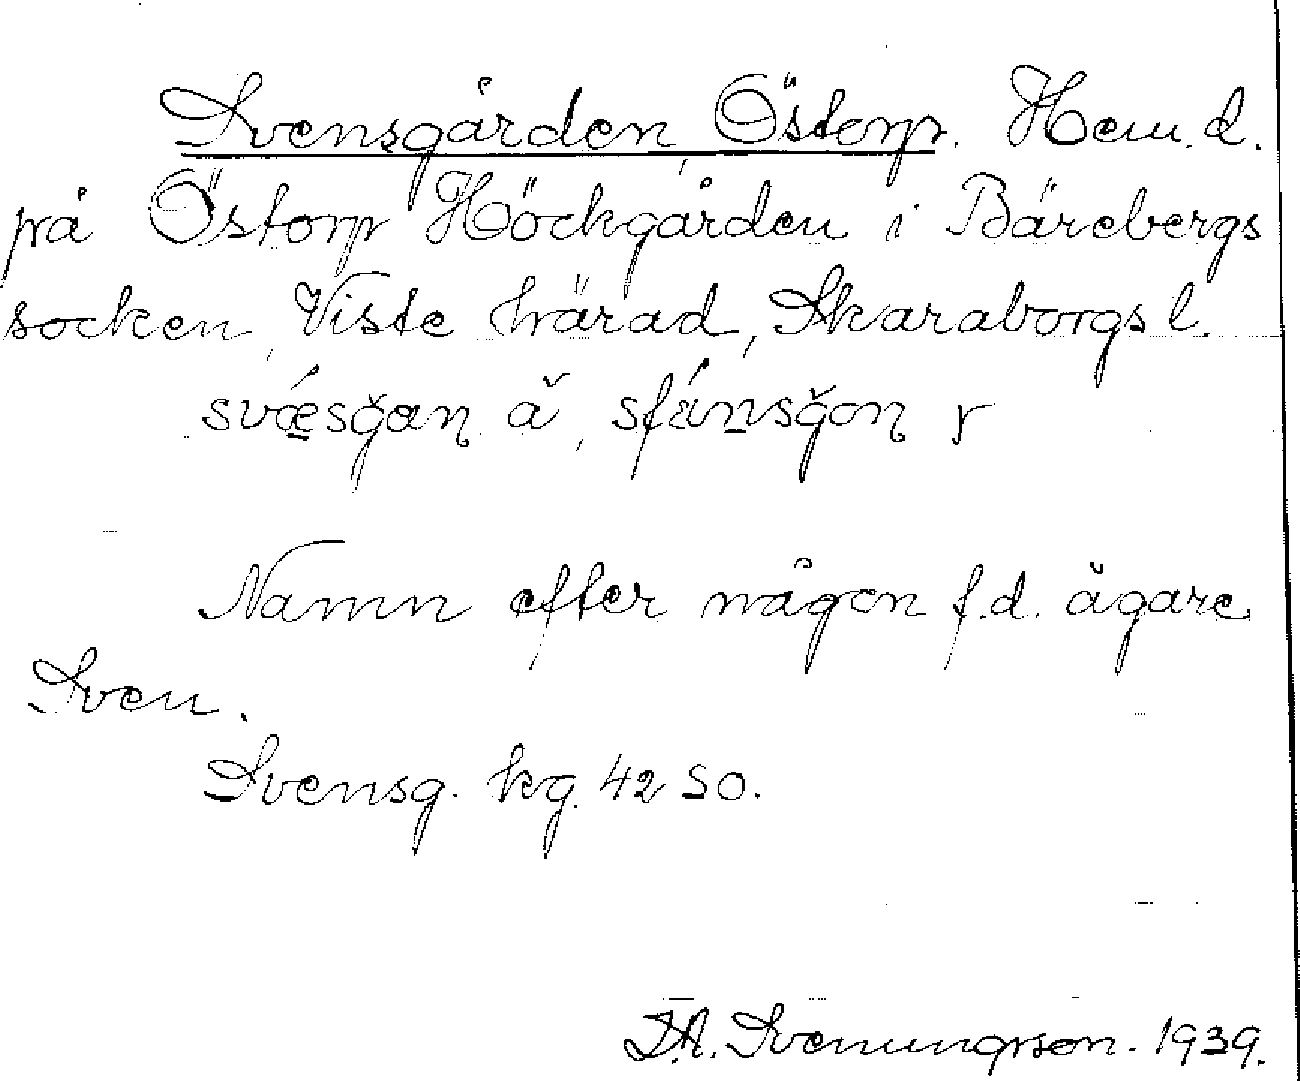 Svensgården, Östorp. Hem. d.
på Östorp Höckgården i Bärebergs
socken, Viste härad, Skaraborgs l.
svǽsǧan ä, r
Namn efter någon f.d. ägare
Sven.
Svensg. kg. 42 SO.
Svenungsson. 1939.